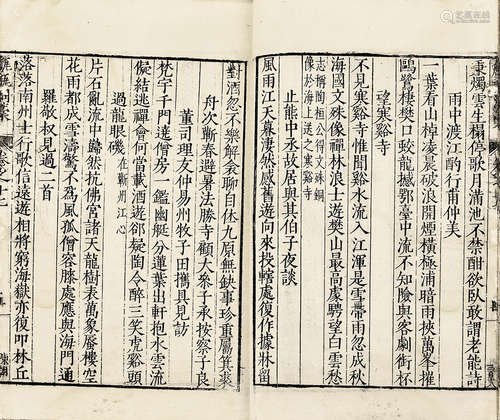 秉燭雲生榻停歌月滿池不禁酣欲臥敢謂老能詩
雨中渡江酧行甫仲美
一葉看山棹凌晨破浪開煙橫極浦暗雨挾萬峯摧
鷗鷺棲樊口蛟龍撼鄂臺中流不知險與客劇銜杯
望寒谿寺
不見寒谿寺惟聞谿水流入江渾是雪帶雨忽成秋
海國文殊像禪林浪士遊樊山最高處騁望白雲愁
志稱陶桓公得文殊銅
像於海上送之寒谿寺
止熊中丞故居與其伯子夜談
風雨江天幕蕭凄然感舊遊向來投轄處復作據牀留
對酒忽不樂解衾聊自休九原無缺事珍重屬箕裘
舟次蘄春避暑法勝寺顧大衆子承按察子良
董司理友仲易州牧子田攜具見訪
梵宇千門達僧房一鑑幽艇分蓮葉出軒抱水雲流
儗結逃禪會何當載酒遊卻疑陶令醉三笑虎谿頭
過龍眼磯
在蘄州江心
片石亂流中巋然抗佛宮諸天龍樹表萬象蜃樓空
花雨都成雪濤驚不為風孤僧容膝處應與海門通
羅敬叔見過二首
落落南州士行歌信遠遊相將窮海嶽亦復叩林丘